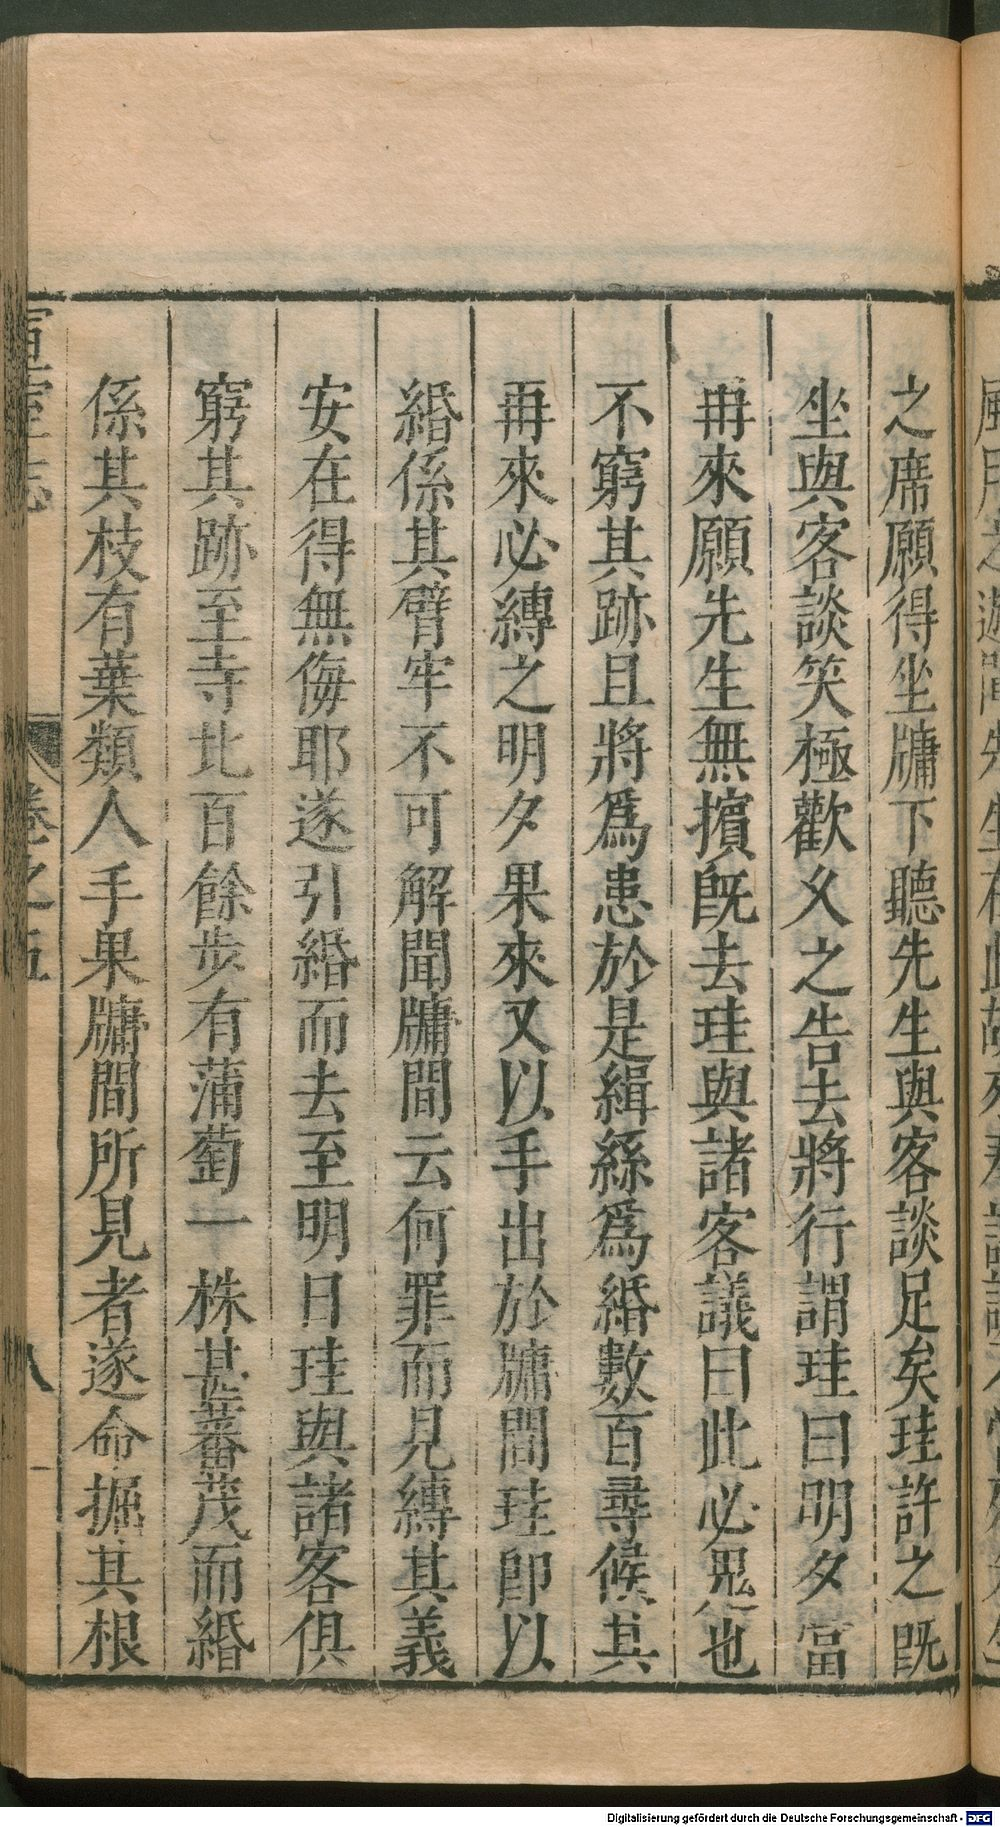 之席願得坐牗下聽先生與客談足矣珪許之既
坐與客談笑極歡久之告去將行謂珪曰明夕當
再來願先生無擯既去珪與諸客議曰此必鬼也
不窮其跡且將爲患於是緝絲爲緍數百尋候其
再來必縛之明夕果來又以手出於牗間珪卽以
緍係其臂牢不可解聞牗間云何罪而見縛其義
安在得無侮耶遂引緍而去至明日珪與諸客俱
窮其跡至寺北百餘步有蒲萄一株甚蕃茂而緍
係其枝有葉類人手果牗間所見者遂命掘其根
宣室志 卷之五 八
Digitalisierung gefördert durch die Deutsche Forschungsgemeinschaft - DFG